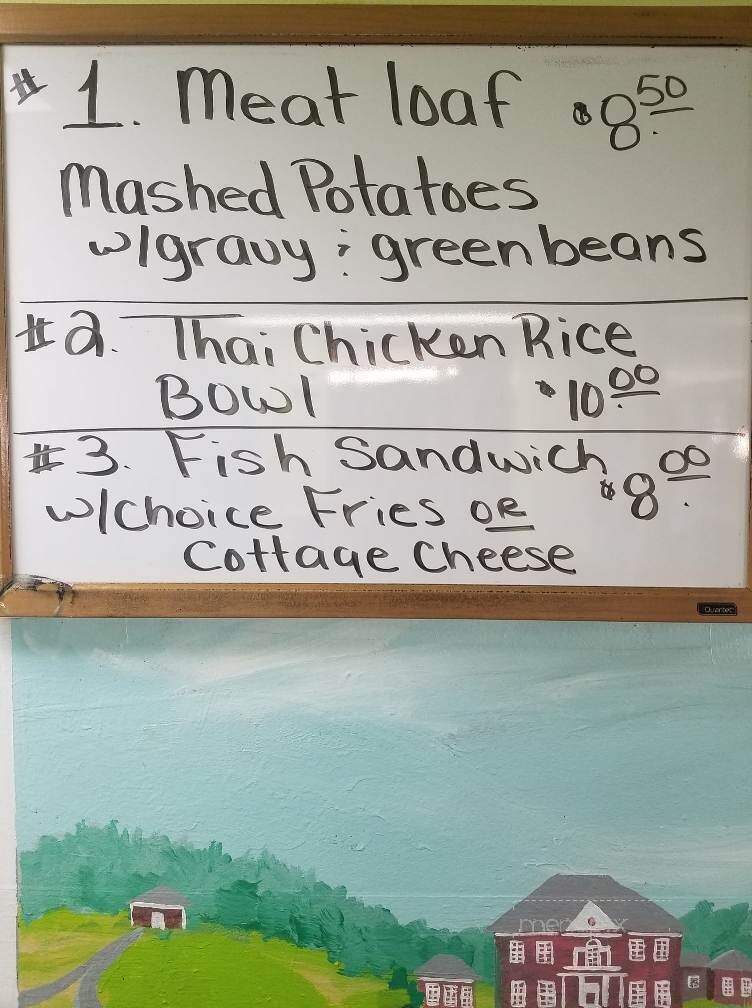 # 1. Meat loaf $8.50
Mashed Potatoes
w/gravy & green beans
#2. Thai Chicken Rice
Bowl $10.00
#3. Fish Sandwich $8.00
w/choice Fries OR
Cottage Cheese
Quartet
menupix